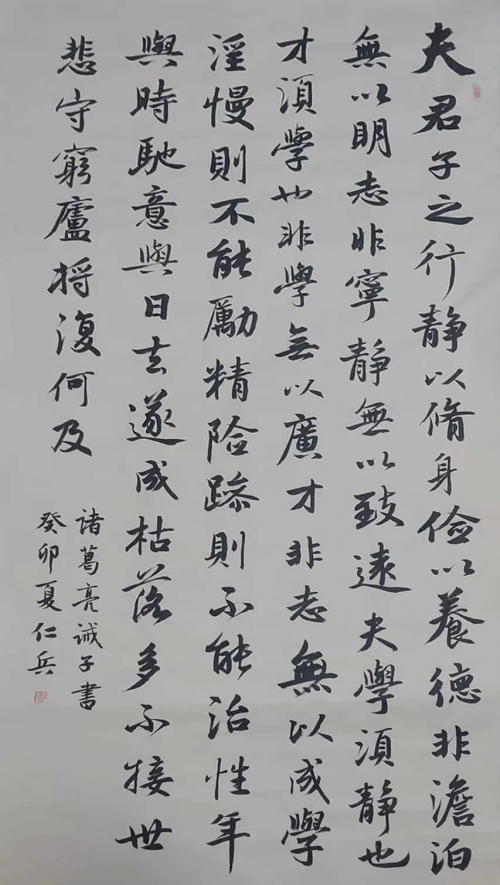 夫君子之行静以脩身儉以養德非澹泊
無以明志非寧静無以致遠夫學須静也
才須學也非學無以廣才非志無以成學
淫慢則不能勵精险躁則不能治性年
與時馳意與日去遂成枯落多不接世
悲守窮廬将復何及
諸葛亮诫子書
癸卯夏仁兵